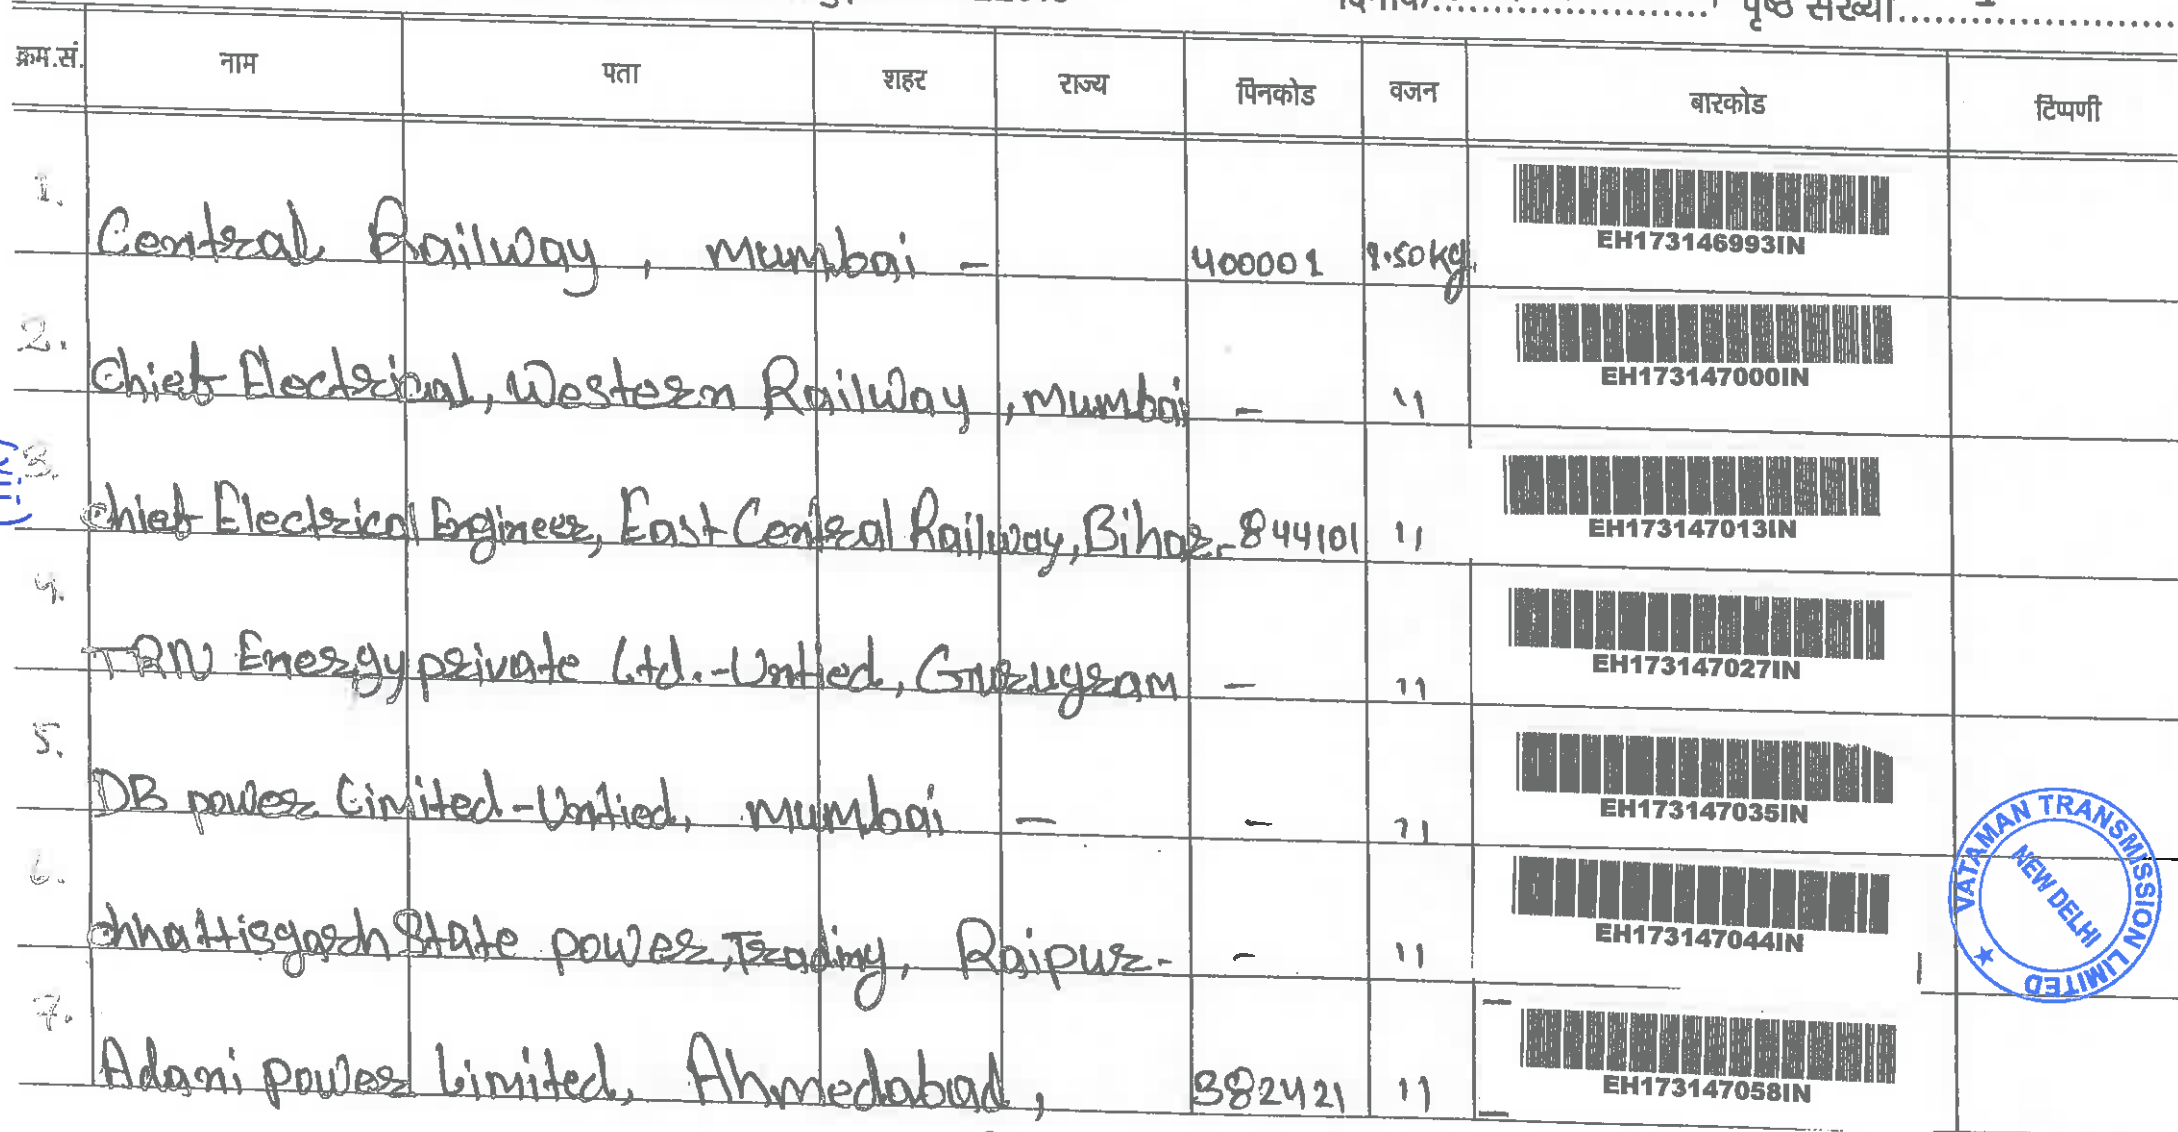 दिनांक........................ पृष्ठ संख्या........................
क्रम.सं. नाम पता शहर राज्य पिनकोड वजन बारकोड टिप्पणी
1. Central Railway, Mumbai - 400001 1.50kg. EH173146993IN
2. Chief Electrical, Western Railway, Mumbai - " EH173147000IN
3. Chief Electrical Engineer, East Central Railway, Bihar - 844101 " EH173147013IN
4. TRN Energy private Ltd. - Untied, Gurugram - " EH173147027IN
5. DB power Limited - Untied, Mumbai - - " EH173147035IN
6. Chhattisgarh State power, Trading, Raipur - - " EH173147044IN
7. Adani power Limited, Ahmedabad, 382421 " EH173147058IN
VATAMAN TRANSMISSION LIMITED
NEW DELHI